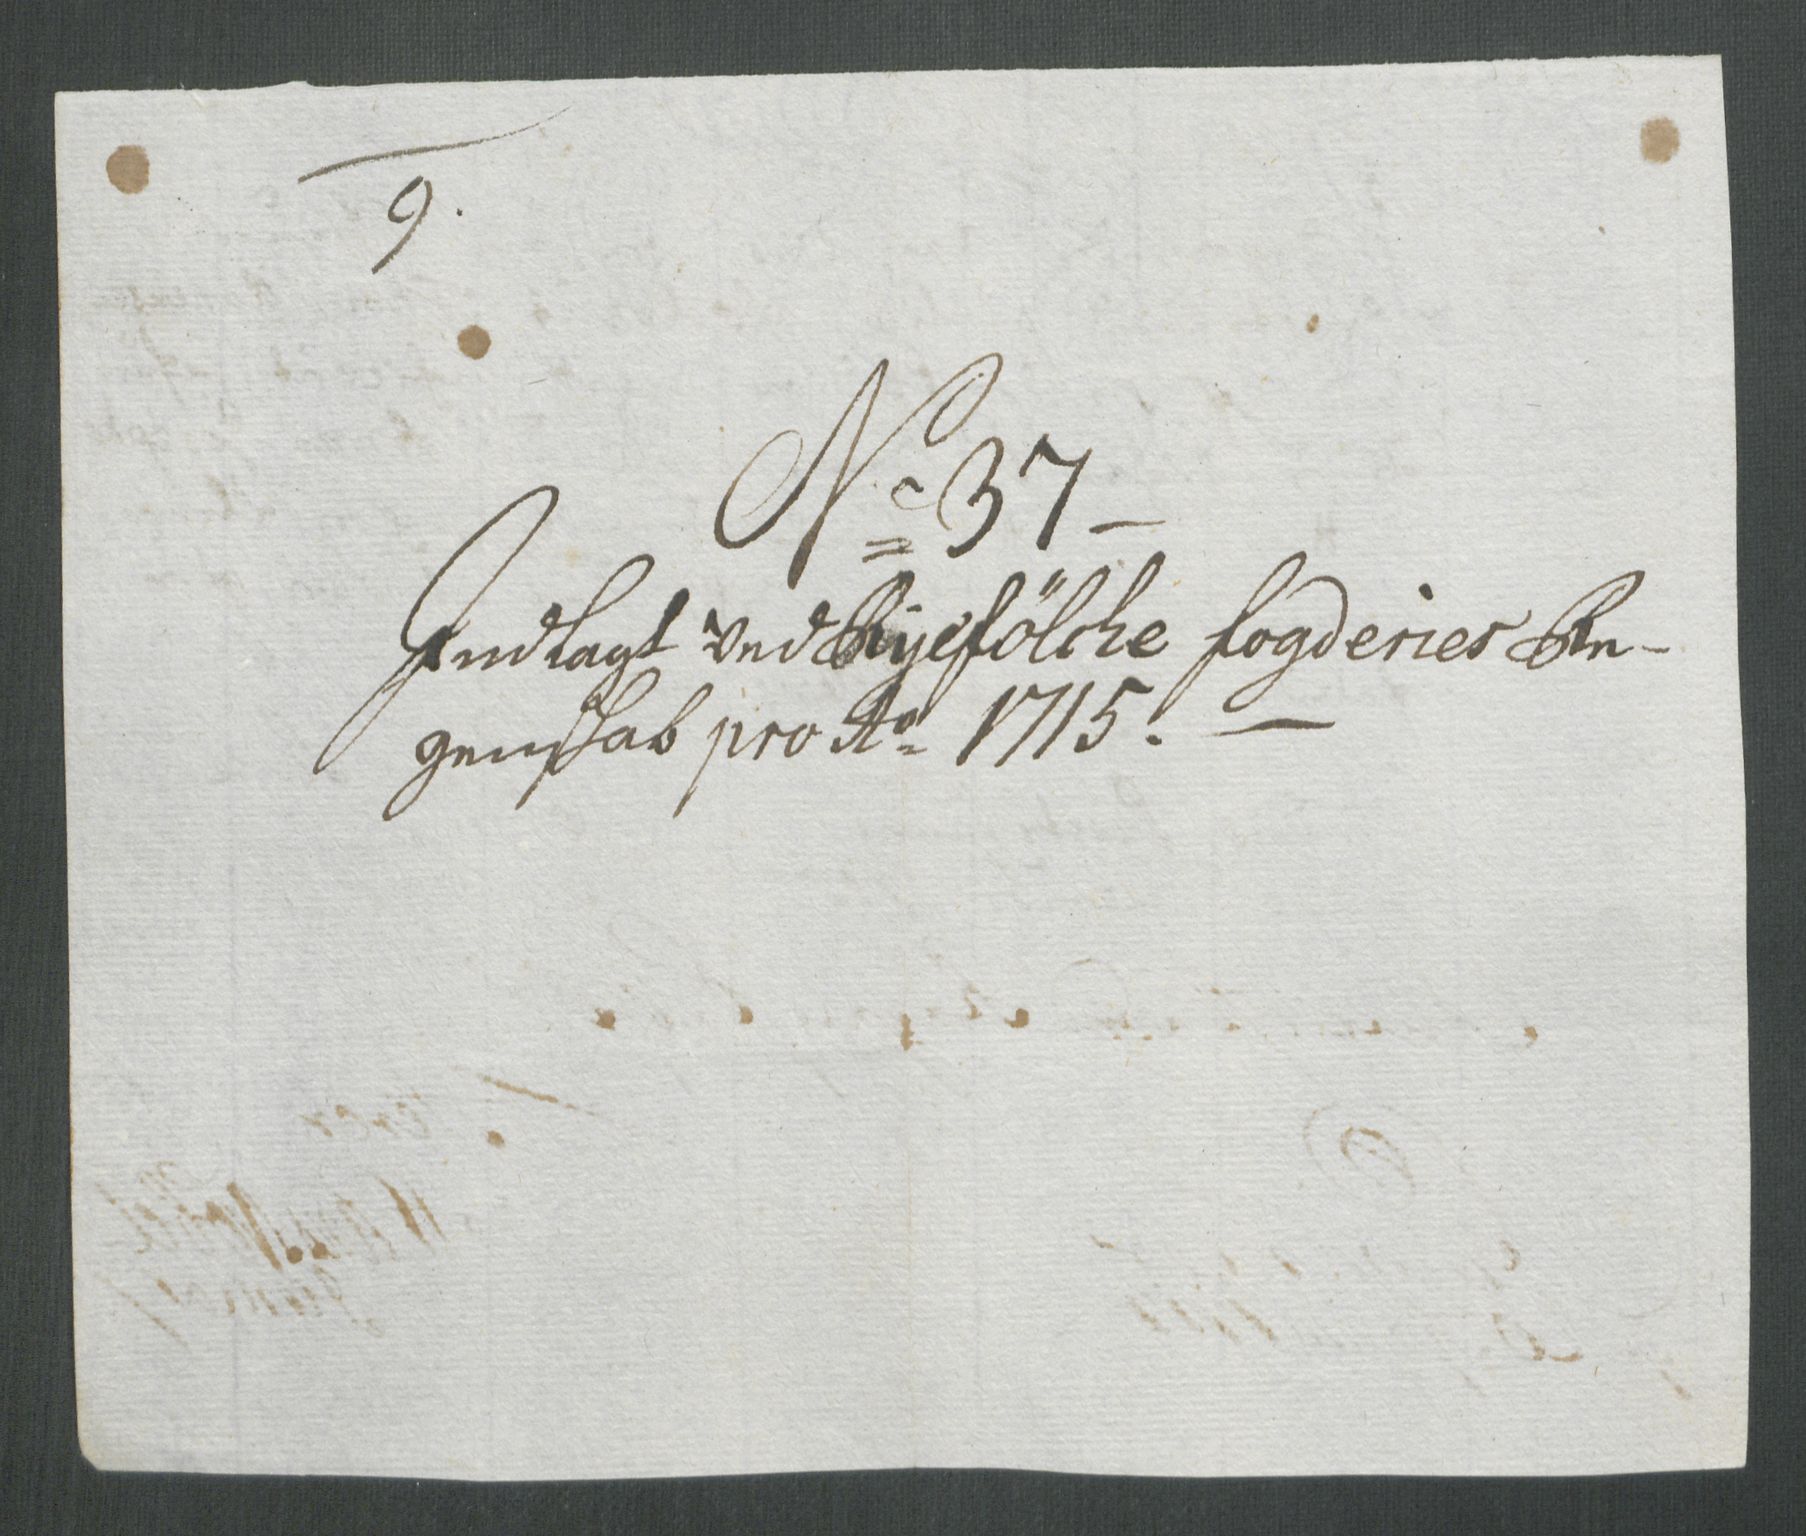 9.
No 37
Indlagt Ved Ryefölche fogderies Re-
genskab pro Ao 1715.